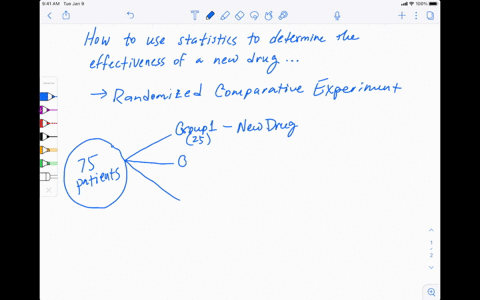 9:41 AM Tue Jan 9
100%
How to use statistics to determine the
effectiveness of a new drug ...
→ Randomized Comparative Experiment
Group 1 - New Drug
(25)
75
patients
G
1
2